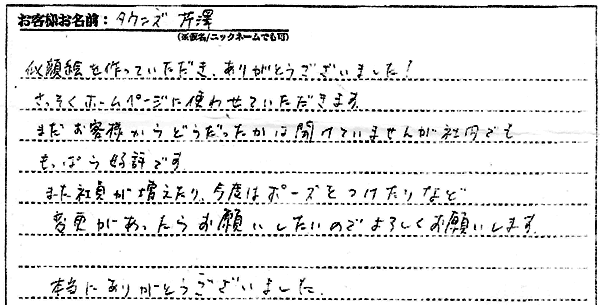 お客様お名前：タウンズ 芹澤
(※仮名/ニックネームでも可)
似顔絵を作っていただき、ありがとうございました！
さっそくホームページに使わせていただきます。
まだお客様からどうだったかは聞けていませんが社内でも
もっぱら好評です。
また社員が増えたり、今度はポーズをつけたりなど
変更があったらお願いしたいのでよろしくお願いします。
本当にありがとうございました。